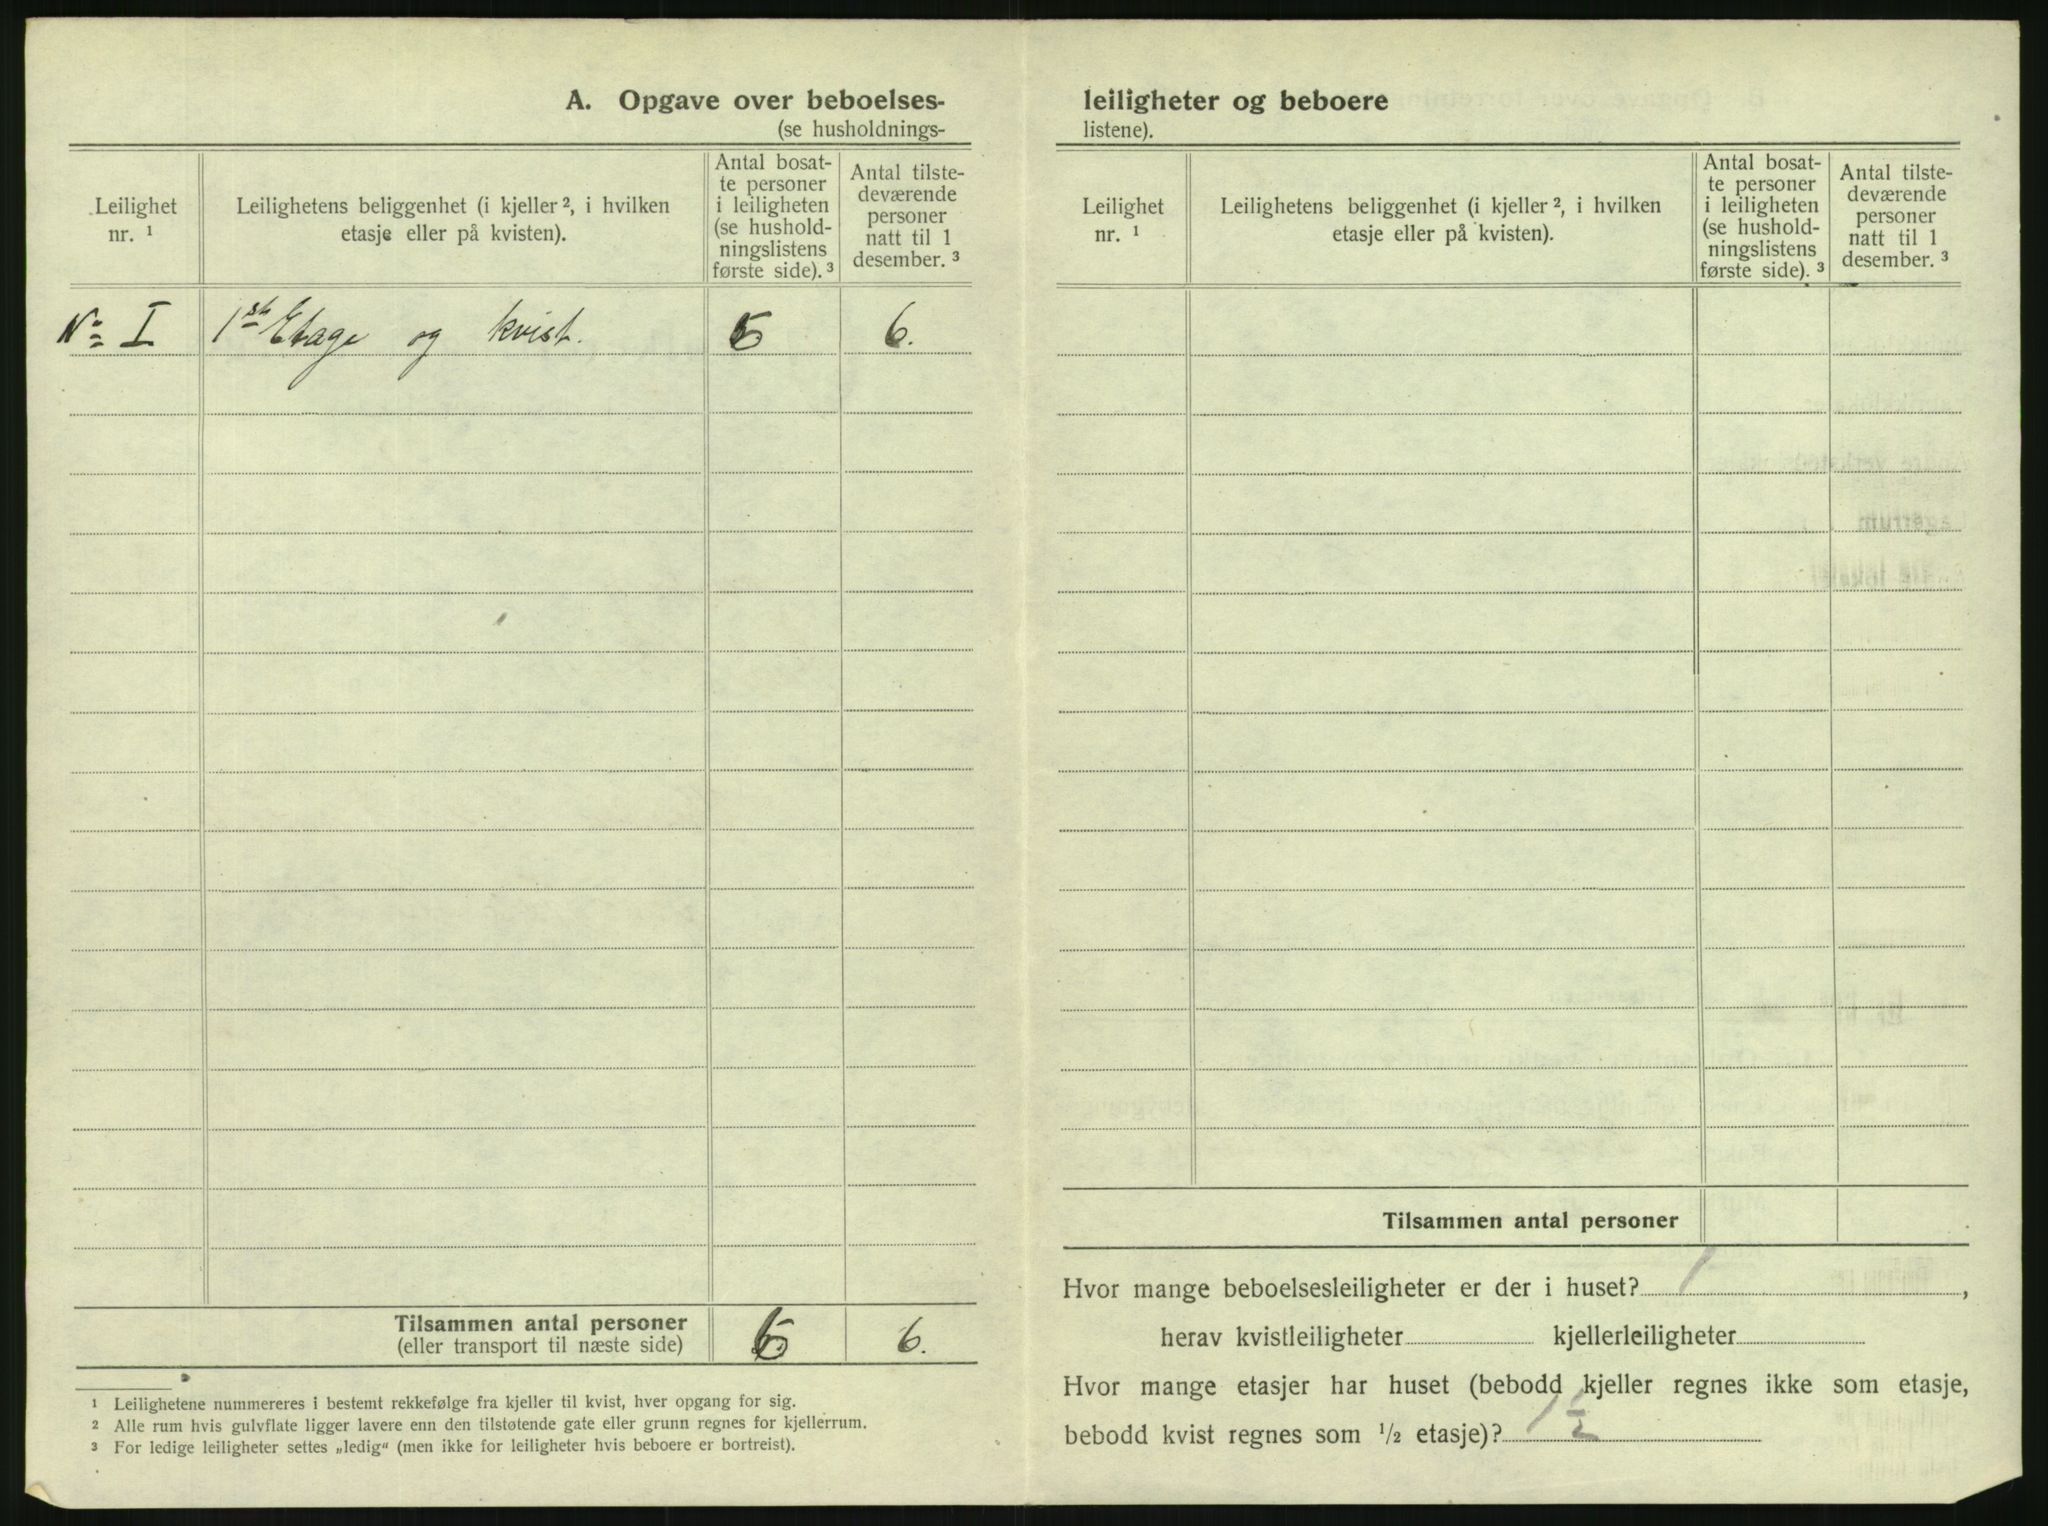 A. Opgave over beboelses-
(se husholdnings-
Leilighet nr. ¹
Leilighetens beliggenhet (i kjeller ², i hvilken etasje eller på kvisten).
Antal bosatte personer i leiligheten (se husholdningslistens første side). ³
Antal tilstedeværende personer natt til 1 desember. ³
No I 1ste Etage og kvist. 5 6.
Tilsammen antal personer 5 6.
(eller transport til næste side)
¹ Leilighetene nummereres i bestemt rekkefølge fra kjeller til kvist, hver opgang for sig.
² Alle rum hvis gulvflate ligger lavere enn den tilstøtende gate eller grunn regnes for kjellerrum.
³ For ledige leiligheter settes „ledig“ (men ikke for leiligheter hvis beboere er bortreist).
leiligheter og beboere
listene).
Leilighet nr. ¹
Leilighetens beliggenhet (i kjeller ², i hvilken etasje eller på kvisten).
Antal bosatte personer i leiligheten (se husholdningslistens første side). ³
Antal tilstedeværende personer natt til 1 desember. ³
Tilsammen antal personer
Hvor mange beboelsesleiligheter er der i huset? 1,
herav kvistleiligheter kjellerleiligheter
Hvor mange etasjer har huset (bebodd kjeller regnes ikke som etasje,
bebodd kvist regnes som ½ etasje)? 1 ½